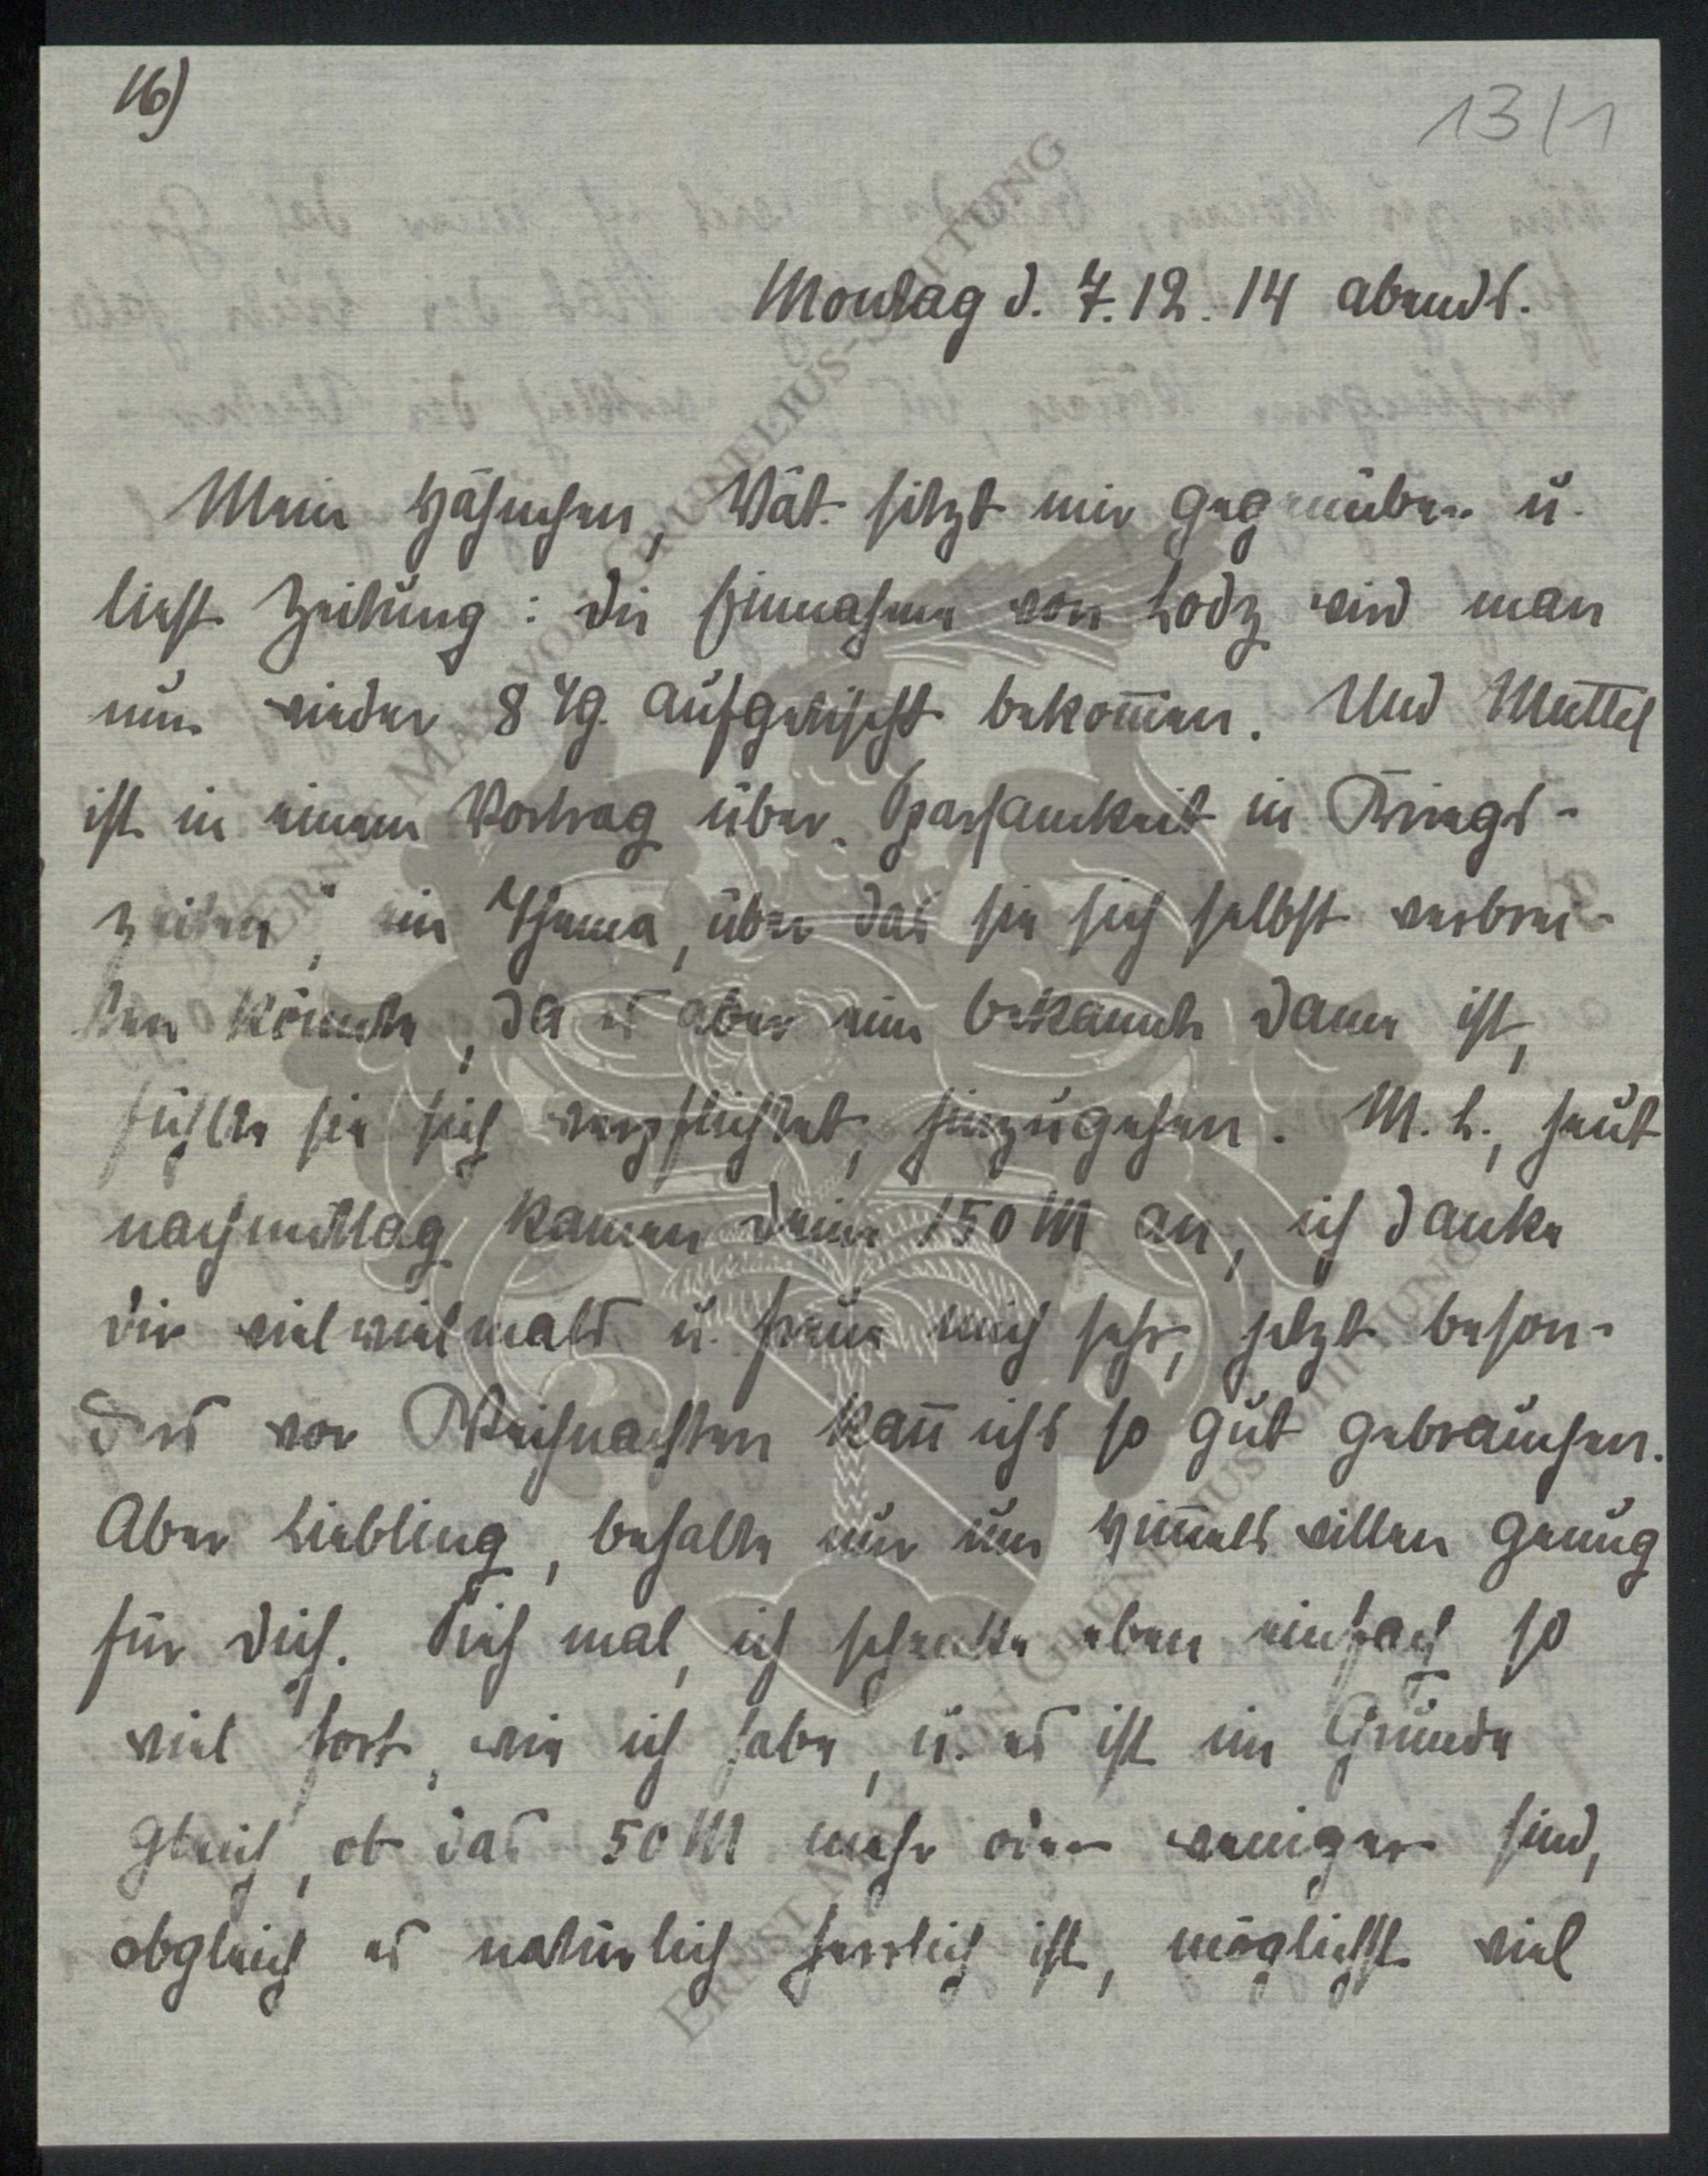 16)
13/1
Montag d. 7.12.14 abends.
Mein Häschen, Vät. sitzt mir gegenüber u.
liest Zeitung: die Einnahme von Lodz wird man
nun wieder 8 Tg. aufgetischt bekom̄en. Und Muttel
ist in einem Vortrag über „Sparsamkeit in Kriegs-
zeiten", ein Thema, über das sie sich selbst verbrei-
ten könnte, da es aber eine bekannte Dame ist,
fühlte sie sich verpflichtet, hinzugehen. M. L., heut
nachmittag kamen deine 150 M an, ich danke
dir vielvielmals u. freue mich sehr, jetzt beson-
ders vor Weihnachten kan̄ ichs so gut gebrauchen.
Aber Liebling, behalte nur um Him̄els willen genug
für dich. Sieh mal, ich schicke eben einfach so
viel fort, wie ich habe, u. es ist im Grunde
gleich, ob das 50 M mehr oder weniger sind,
obgleich es natürlich herrlich ist, möglichst viel
ERNST MAX VON GRUNELIUS-STIFTUNG
ERNST MAX VON GRUNELIUS-STIFTUNG